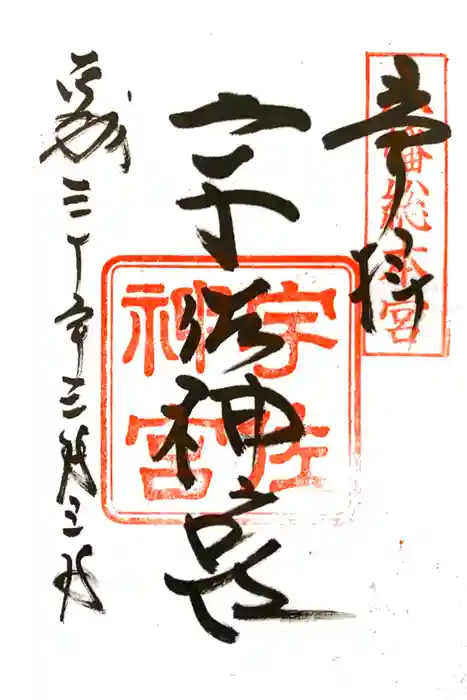 奉拝
八幡総本宮
宇佐神宮
宇佐
神宮
平成三十年三月三日